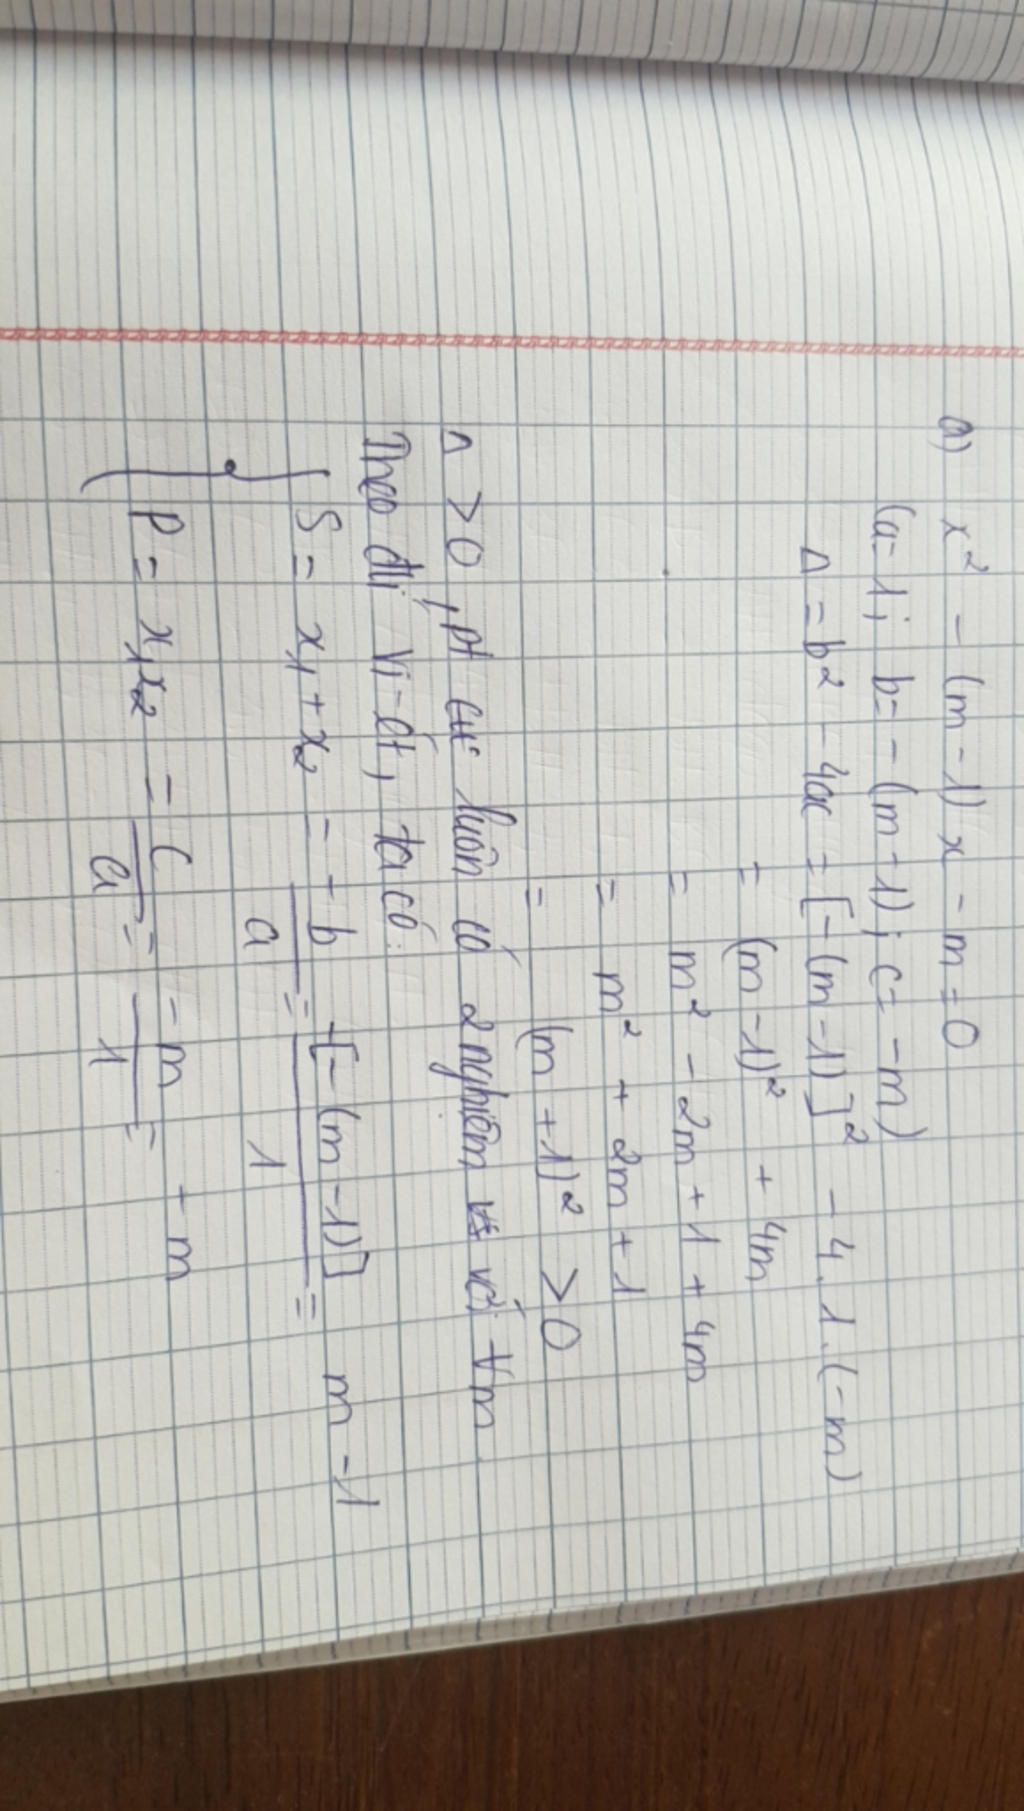 a) x² - (m - 1) x - m = 0
(a = 1; b = - (m - 1); c = - m)
Δ = b² - 4ac = [- (m - 1)]² - 4.1.(-m)
= (m - 1)² + 4m
= m² - 2m + 1 + 4m
= m² + 2m + 1
= (m + 1)² > 0
Δ > 0, pt luôn có 2 nghiệm với ∀m
Theo đlí Vi-ét, ta có:
{ S = x₁ + x₂ = -b/a = -[- (m - 1)]/1 = m - 1
P = x₁x₂ = c/a = -m/1 = - m